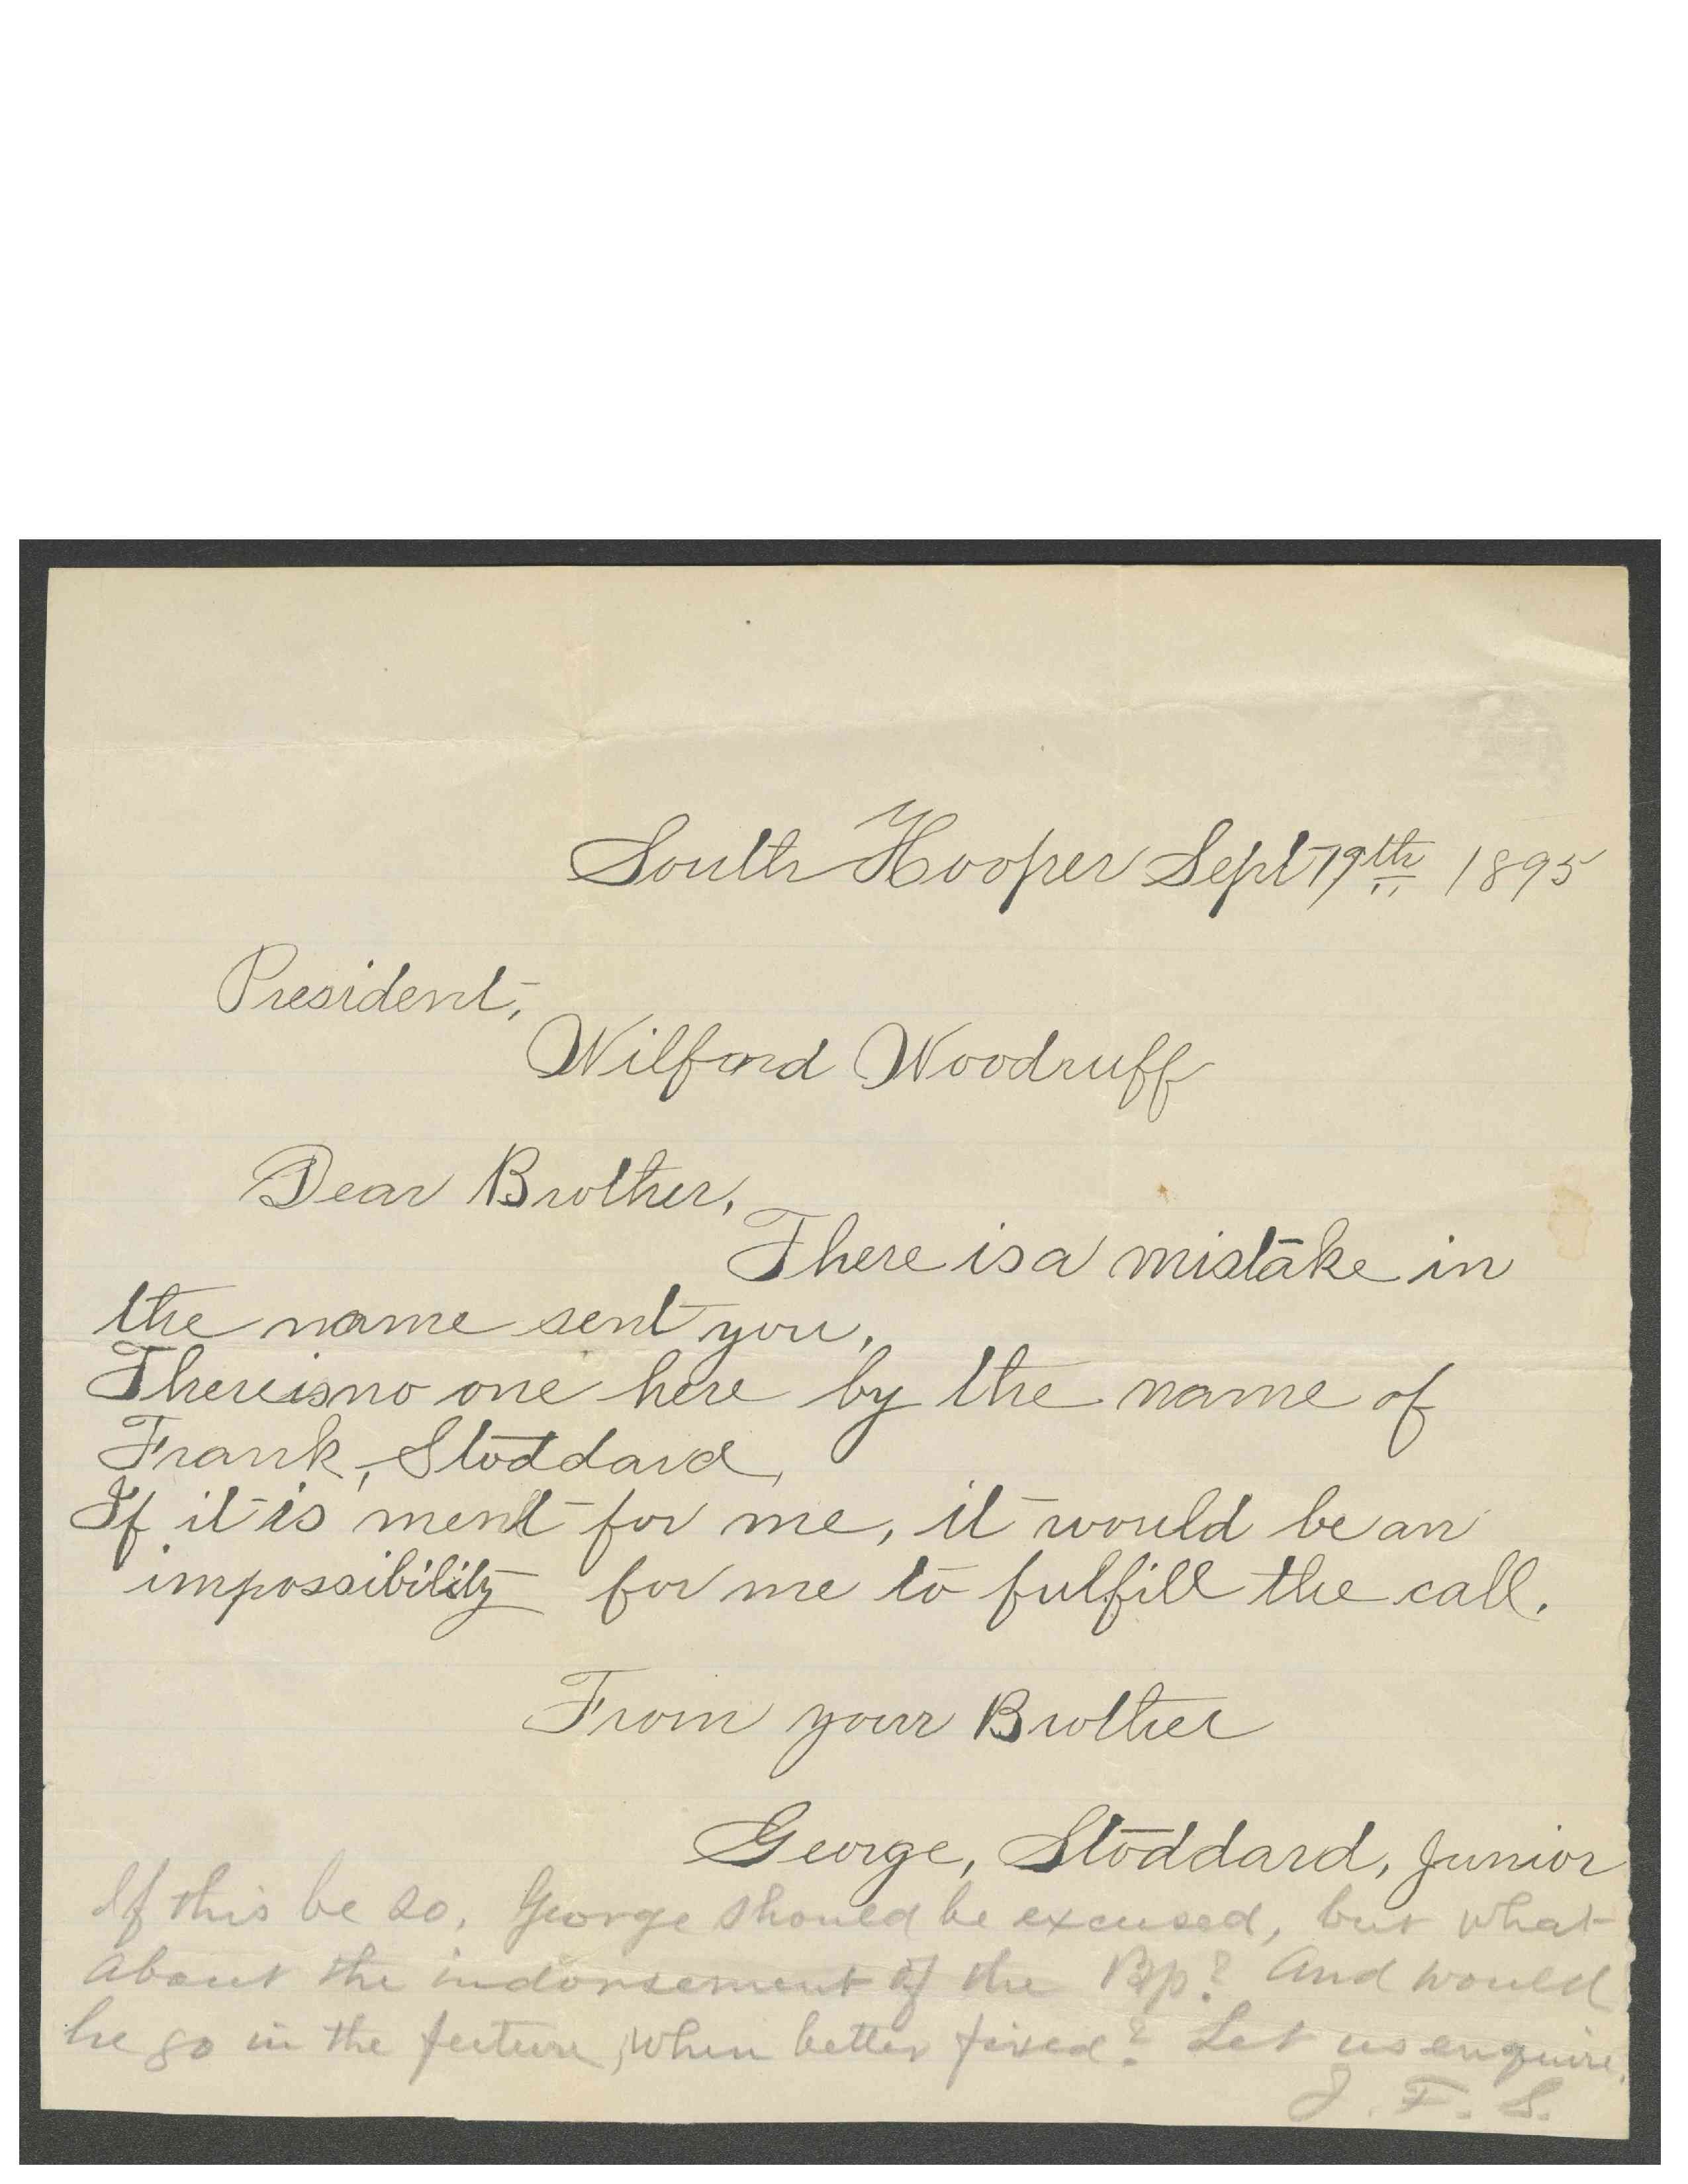 South Hooper Sept 19th 1895
President,
Wilford Woodruff
Dear Brother,
There is a mistake in
the name sent you.
There is no one here by the name of
Frank, Stoddard,
If it is ment for me, it would be an
impossibility for me to fulfill the call.
From your Brother
George, Stoddard, Junior
If this be so, George should be excused, but what
about the indorsement of the Bp? And would
he go in the future, when better fixed? Let us enquire.
J. F. S.